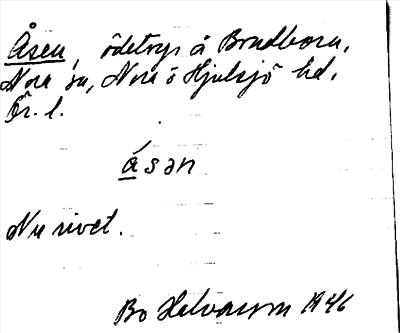 Åsen, ödetorp å Bradborn,
Nora sn, Nora ö Hjulsjö hd,
Ör. l.
åsən
Nu rivet.
Bo Halvarson 1946